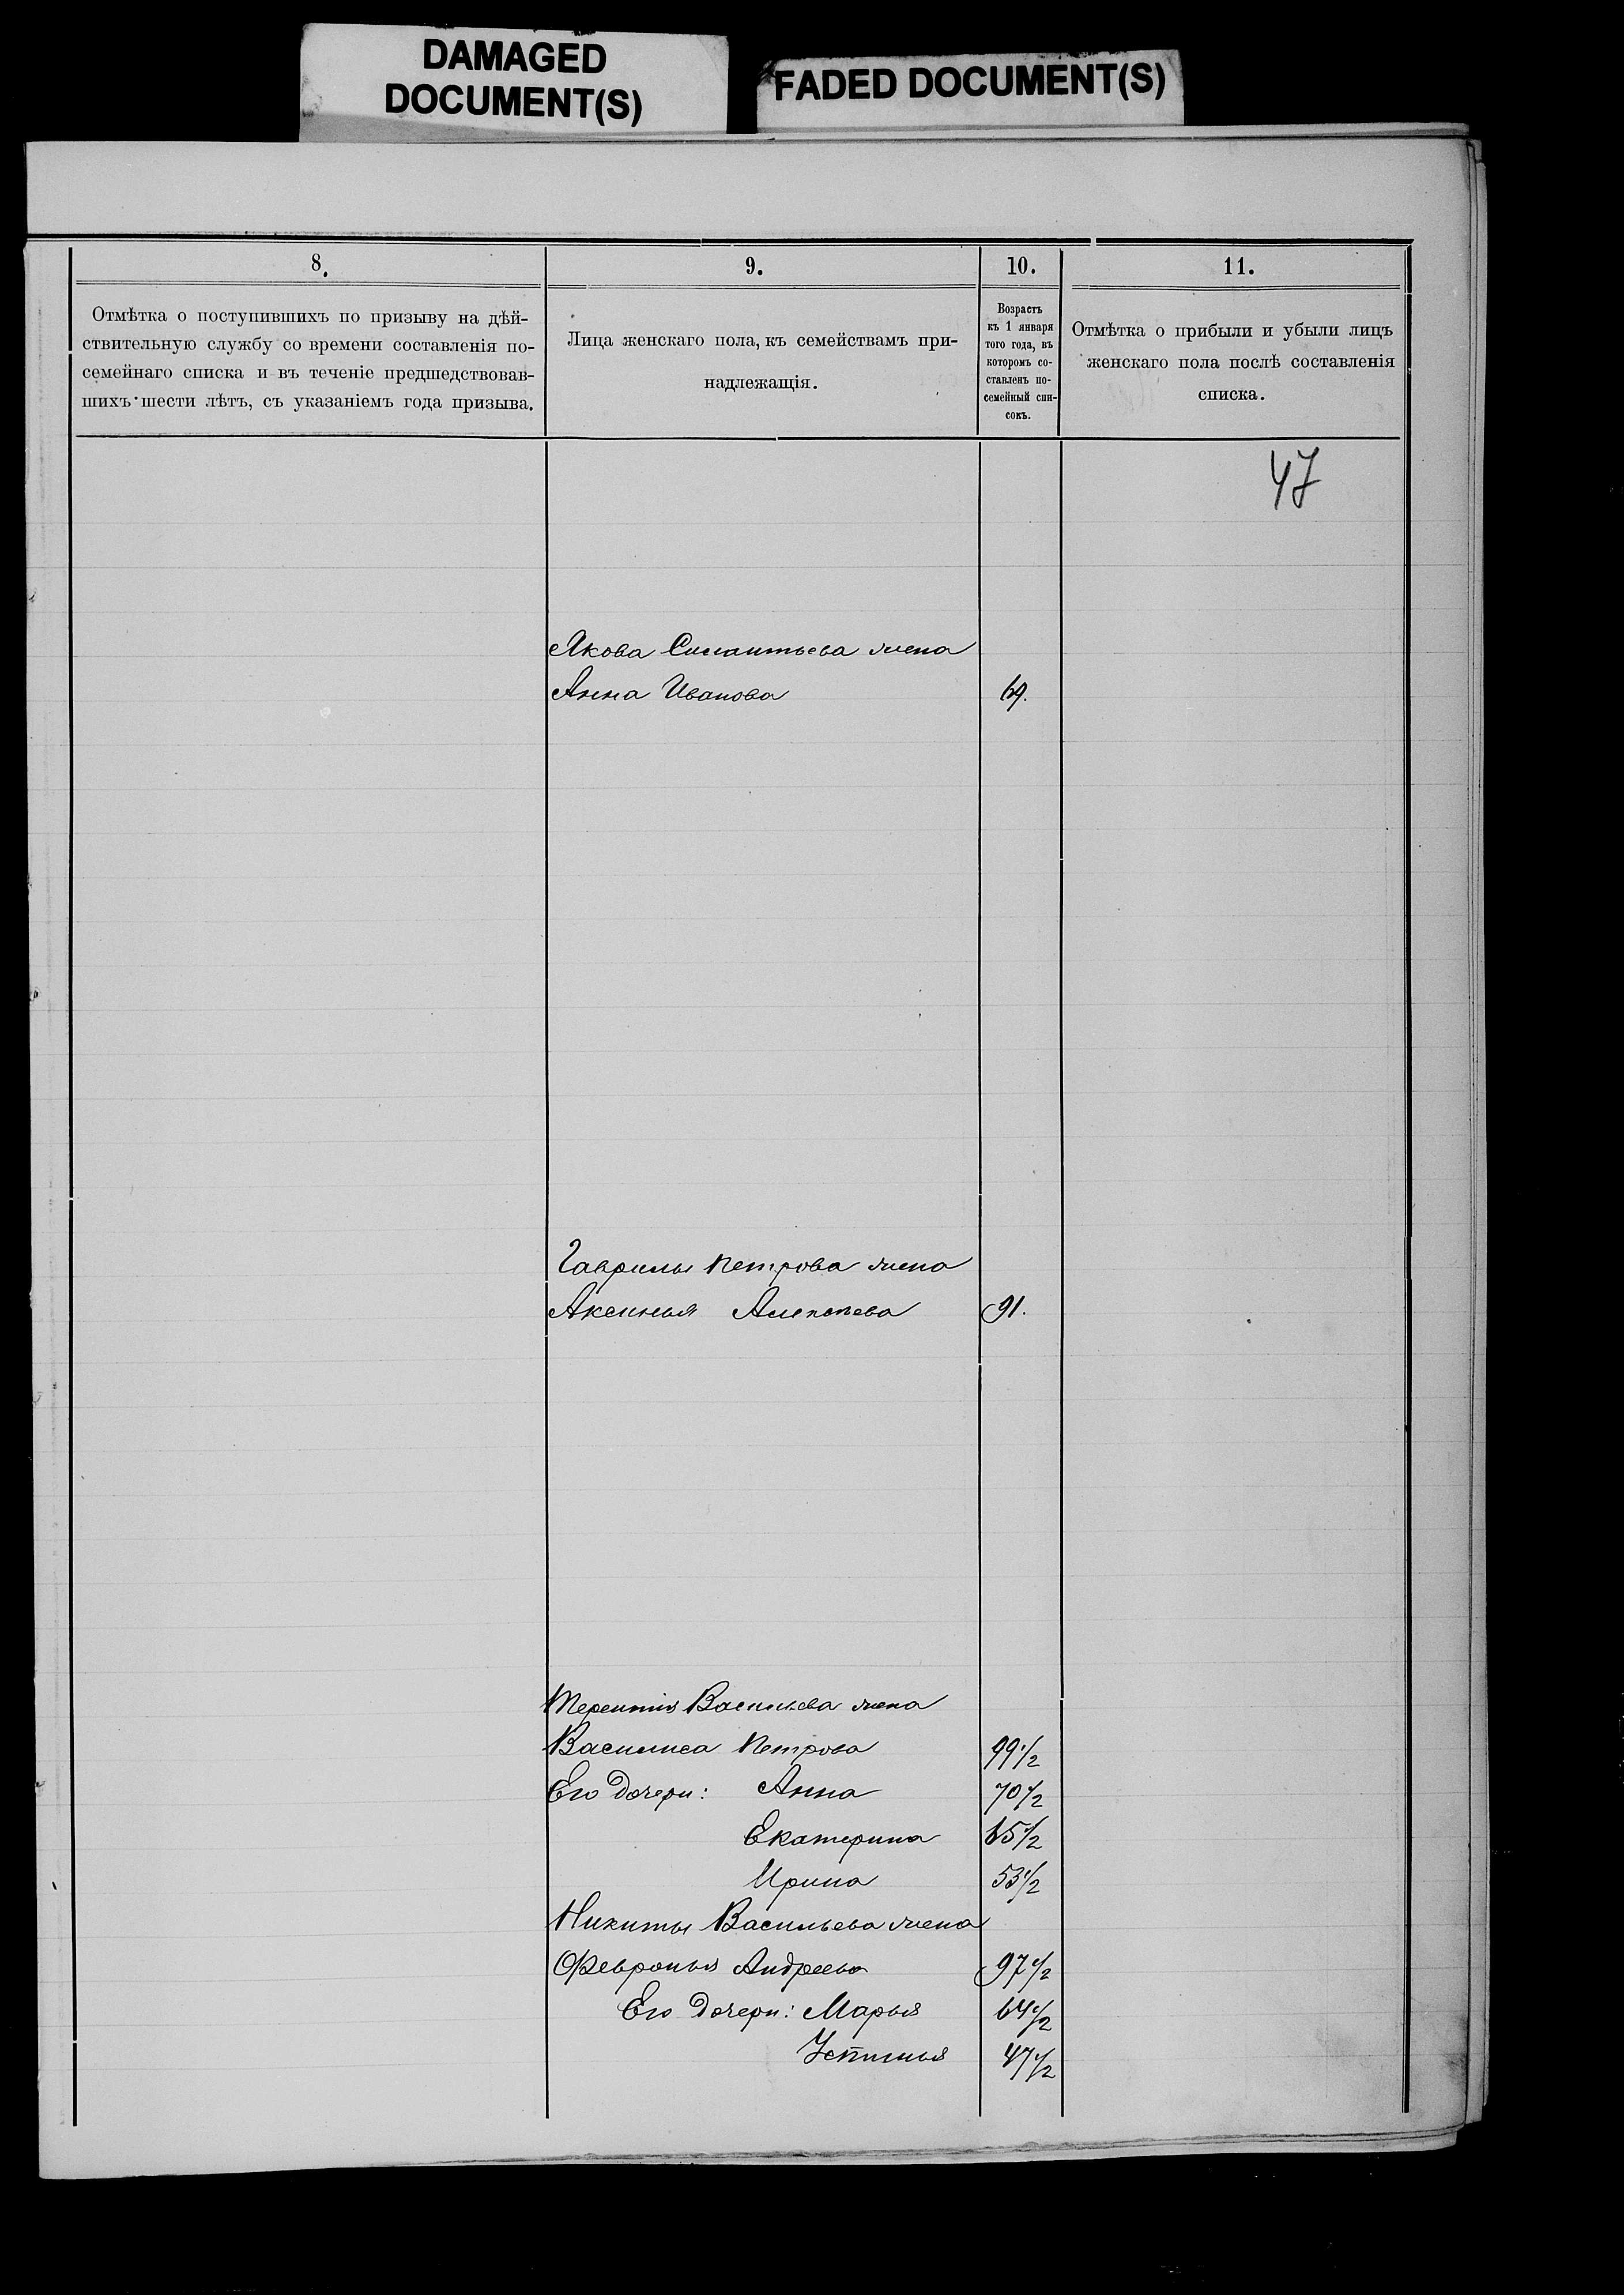 DAMAGED
DOCUMENT(S)
FADED DOCUMENT(S)
8.
Отмѣтка о поступившихъ по призыву на дѣй-
ствительную службу со времени составленія по-
семейнаго списка и въ теченіе предшедствовав-
шихъ шести лѣтъ, съ указаніемъ года призыва.
9.
Лица женскаго пола, къ семействамъ при-
надлежащія.
10.
Возрастъ
къ 1 января
того года, въ
которомъ со-
ставленъ по-
семейный спи-
сокъ.
11.
Отмѣтка о прибыли и убыли лицъ
женскаго пола послѣ составленія
списка.
47
Якова Силантьева жена
Анна Иванова 69.
Гаврилы Петрова жена
Аксинья Алексѣева 91.
Терентія Васильева жена
Василиса Петрова 99 1/2
Его дочери: Анна 70 1/2
Екатерина 65 1/2
Ирина 53 1/2
Никиты Васильева жена
Февронья Андреева 97 1/2
Его дочери: Марья 64 1/2
Устинья 47 1/2